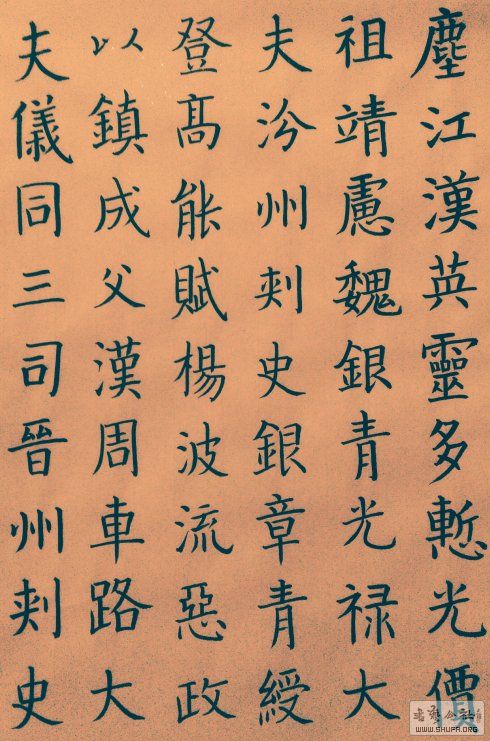 塵江漢英靈多慙光價
祖靖慮魏銀青光禄大
夫汾州刾史銀章青綬
登髙能賦楊波流惡政
以鎮成父漢周車路大
夫儀同三司晉州刾史
WWW.SHUFA.ORG